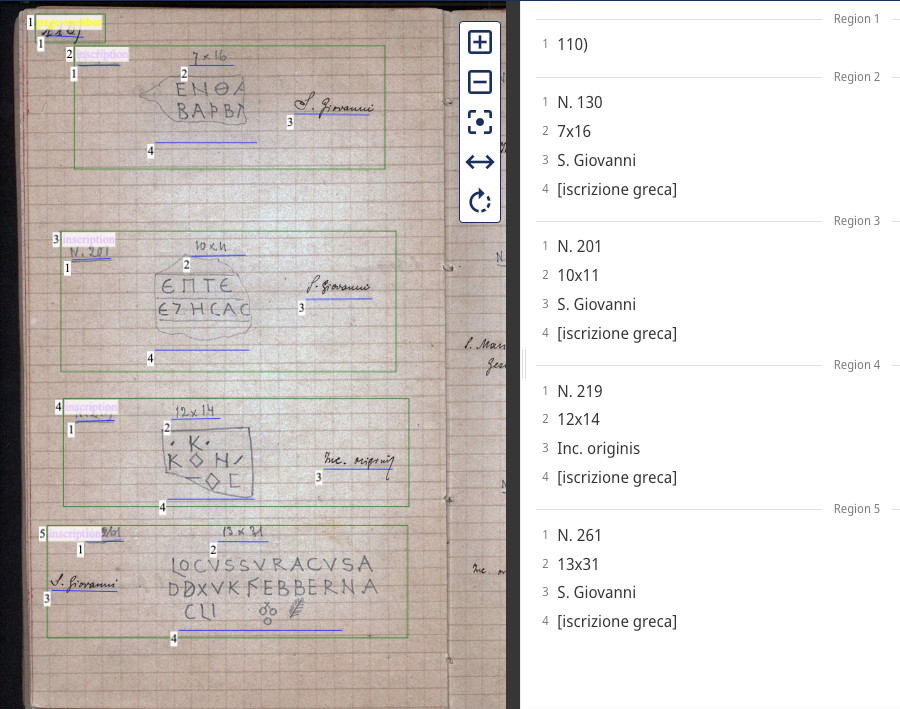 1 page-number
1 110)
2 inscription
1
7 x 16
2
ΕΝΘΑ
ΒΑΡΒΑ
S. Giovanni
3
4
3 inscription
N. 201
1
10 x 11
2
ЄΠΤЄ
ЄΖΗСΑС
S. Giovanni
3
4
4 inscription
1
12 x 14
2
· Κ ·
Κ ◇ Η /
◇ C
Inc. originis
3
4
5 inscription 261
1
13 x 31
2
LOCVSSVRACVSA
DDXVKFEBBERNA
CLI
S. Giovanni
3
4
Region 1
1 110)
Region 2
1 N. 130
2 7x16
3 S. Giovanni
4 [iscrizione greca]
Region 3
1 N. 201
2 10x11
3 S. Giovanni
4 [iscrizione greca]
Region 4
1 N. 219
2 12x14
3 Inc. originis
4 [iscrizione greca]
Region 5
1 N. 261
2 13x31
3 S. Giovanni
4 [iscrizione greca]